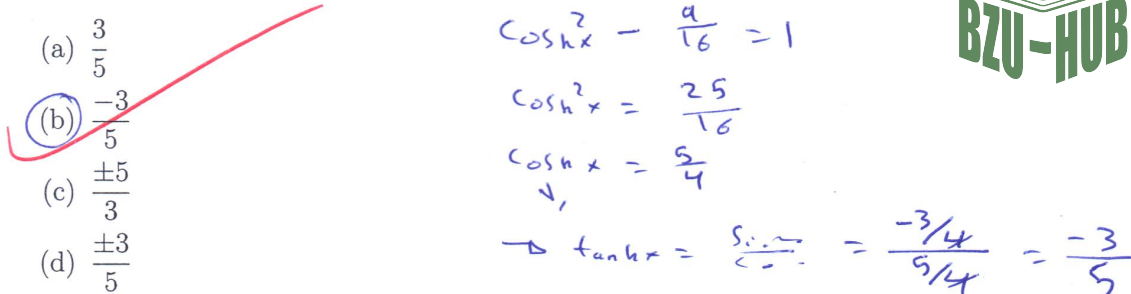 (a) 3/5
(b) -3/5
(c) ±5/3
(d) ±3/5
cosh²x - 9/16 = 1
cosh²x = 25/16
cosh x = 5/4
→ tanhx = = (-3/4)/(5/4) = -3/5
BZU-HUB